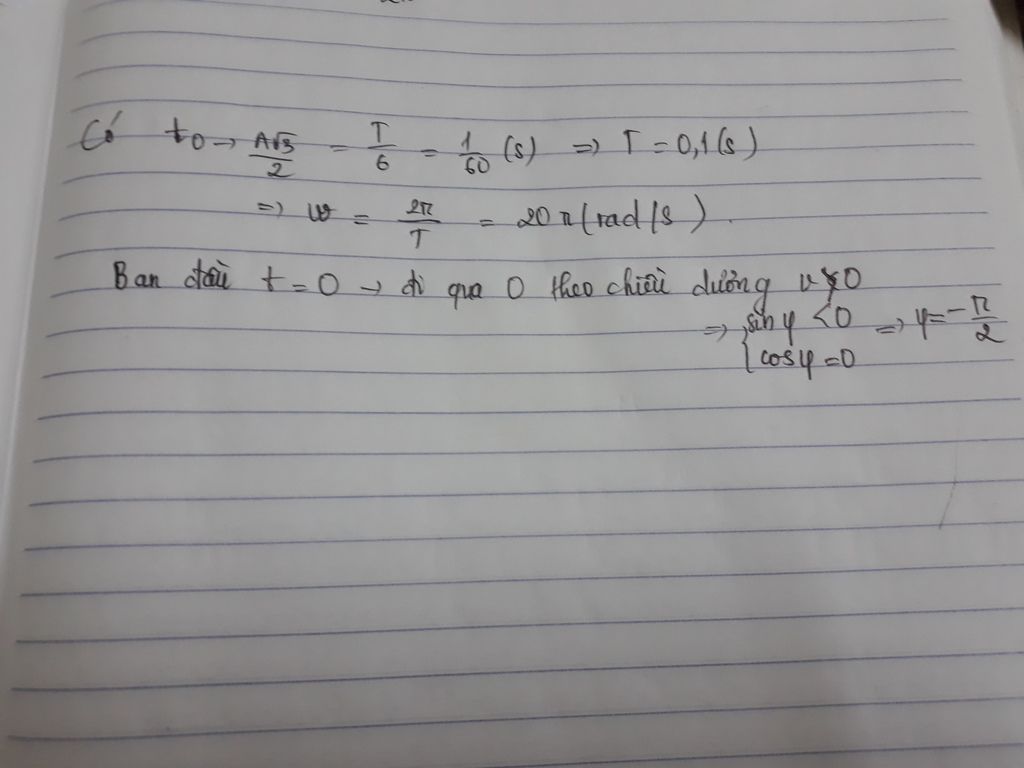 Có t₀→A√3/2 = T/6 = 1/60 (s) => T = 0,1(s)
=> ω = 2π/T = 20π(rad/s).
Ban đầu t = 0 → đi qua 0 theo chiều dương v>0
=> { sinφ < 0 => φ = -π/2
cosφ = 0